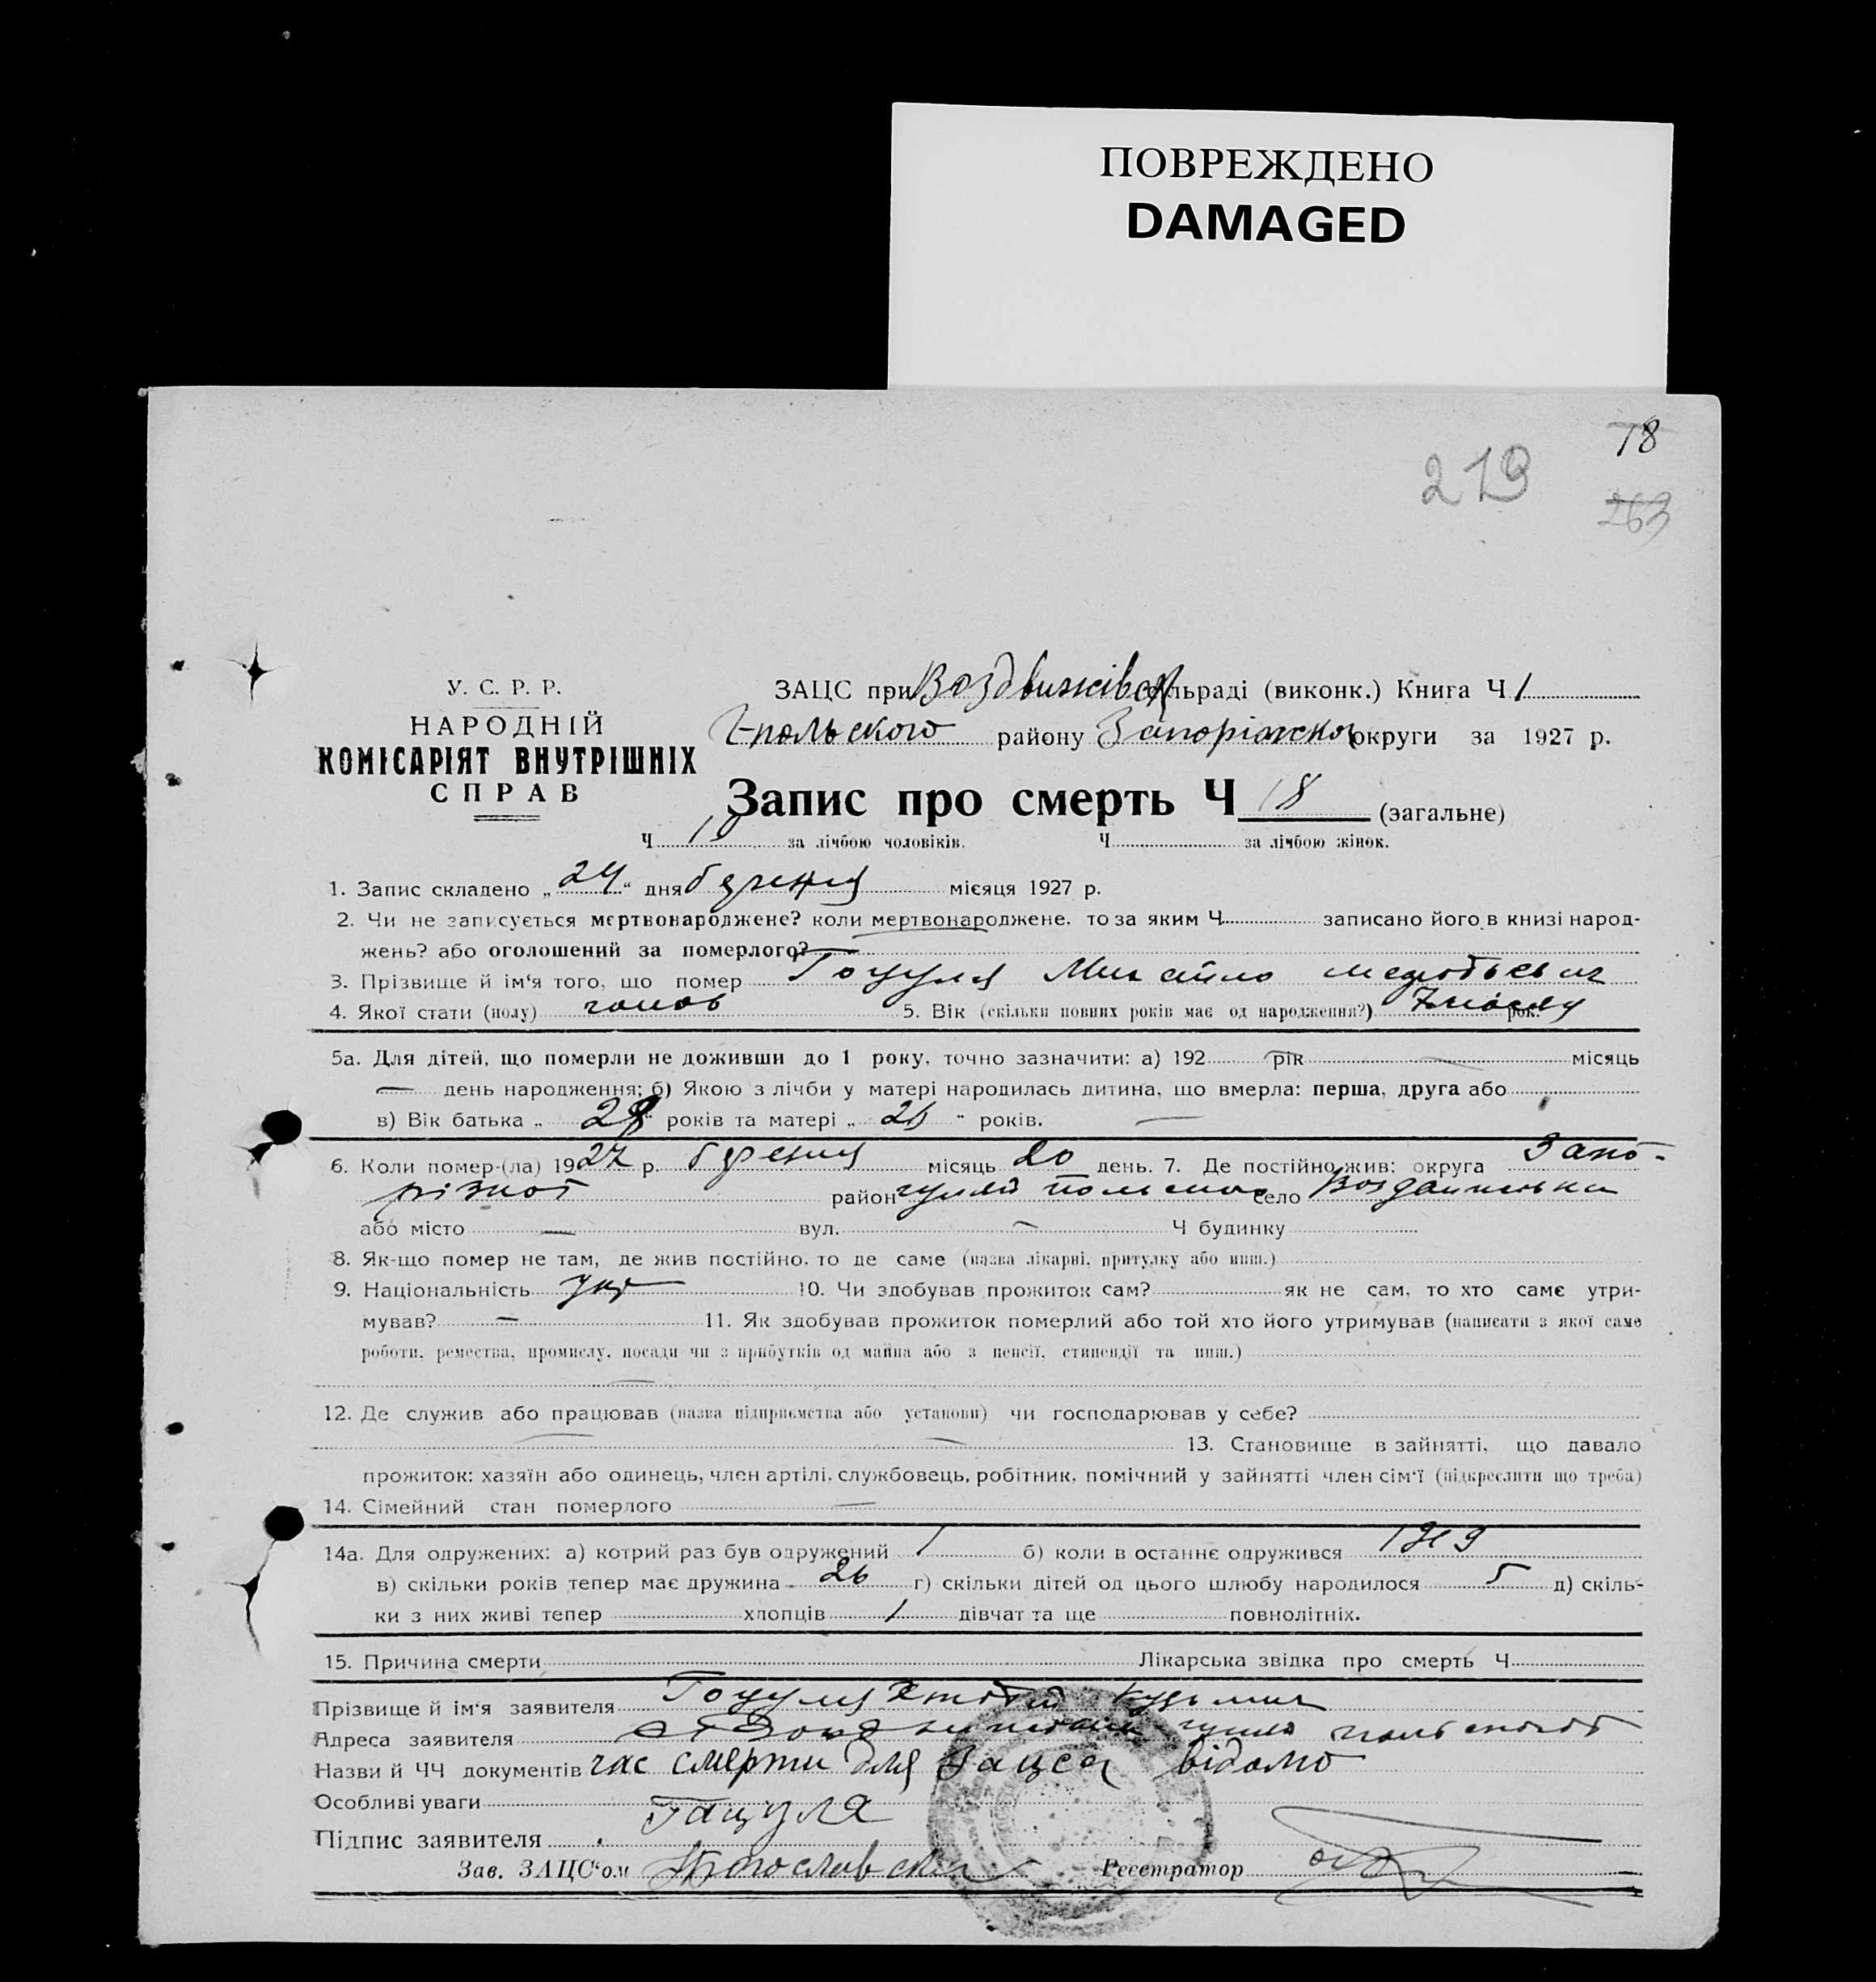 ПОВРЕЖДЕНО
DAMAGED
18
219
263
У. С. Р. Р.
НАРОДНІЙ
КОМІСАРІЯТ ВНУТРІШНІХ
СПРАВ
ЗАЦС при Воздвижівск сільраді (виконк.) Книга Ч 1
Г-польского району Запоріжског округи за 1927 р.
Запис про смерть Ч 18 (загальне)
Ч 10 за лічбою чоловіків. Ч за лічбою жінок.
1. Запис складено „ 24 “ дня березня місяця 1927 р.
2. Чи не записується мертвонароджене? коли мертвонароджене, то за яким Ч записано його в книзі народ-
жень? або оголошений за померлого?
3. Прізвище й ім‘я того, що помер Гоцуля Михайло
4. Якої стати (полу) чолов 5. Вік (скільки повних років має од народження?) 7 рок.
5а. Для дітей, що померли не доживши до 1 року, точно зазначити: а) 192 рік місяць
— день народження; б) Якою з лічби у матері народилась дитина, що вмерла: перша, друга або
в) Вік батька „ 28 “ років та матері „ 26 “ років. —
6. Коли помер-(ла) 1927 р. березня місяць 20 день. 7. Де постійно жив: округа Запо-
різкої район гуляй польське село Воздвиженка
або місто — вул. — Ч будинку
8. Як-що помер не там, де жив постійно, то де саме (назва лікарні, притулку або инш.)
9. Національність укр 10. Чи здобував прожиток сам? як не сам, то хто саме утри-
мував? — 11. Як здобував прожиток померлий або той хто його утримував (написати з якої саме
роботи, ремества, промислу, посади чи з прибутків од майна або з пенсії, стипендії та инш.)
—
12. Де служив або працював (назва підприємства або установи) чи господарював у себе?
— — 13. Становище в зайнятті, що давало
прожиток: хазяїн або одинець, член артілі, службовець, робітник, помічний у зайнятті член сім‘ї (підкреслити що треба)
14. Сімейний стан померлого —
14а. Для одружених: а) котрий раз був одружений 1 б) коли в останнє одружився 1919
в) скільки років тепер має дружина 26 г) скільки дітей од цього шлюбу народилося 5 д) скіль-
ки з них живі тепер хлопців 1 дівчат та ще повнолітніх.
15. Причина смерти Лікарська звідка про смерть Ч
Прізвище й ім‘я заявителя Гоцуля Кузьмич
Адреса заявителя гуляй
Назви й ЧЧ документів час смерти для Зацса відомо
Особливі уваги
Підпис заявителя Гацуля
Зав. ЗАЦС‘ом Реєстратор